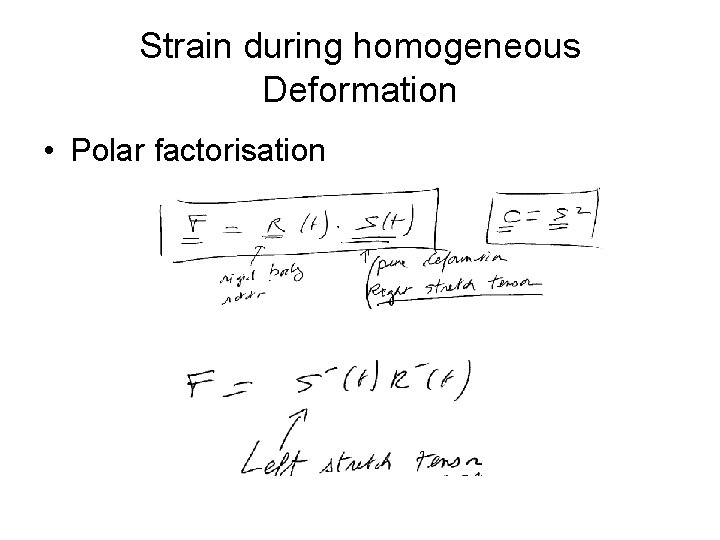 Strain during homogeneous
Deformation
• Polar factorisation
F = R (t) . S(t)
C = S²
rigid body
pure deformation
Right stretch tensor
F = S⁻(t) R⁻(t)
Left stretch tensor